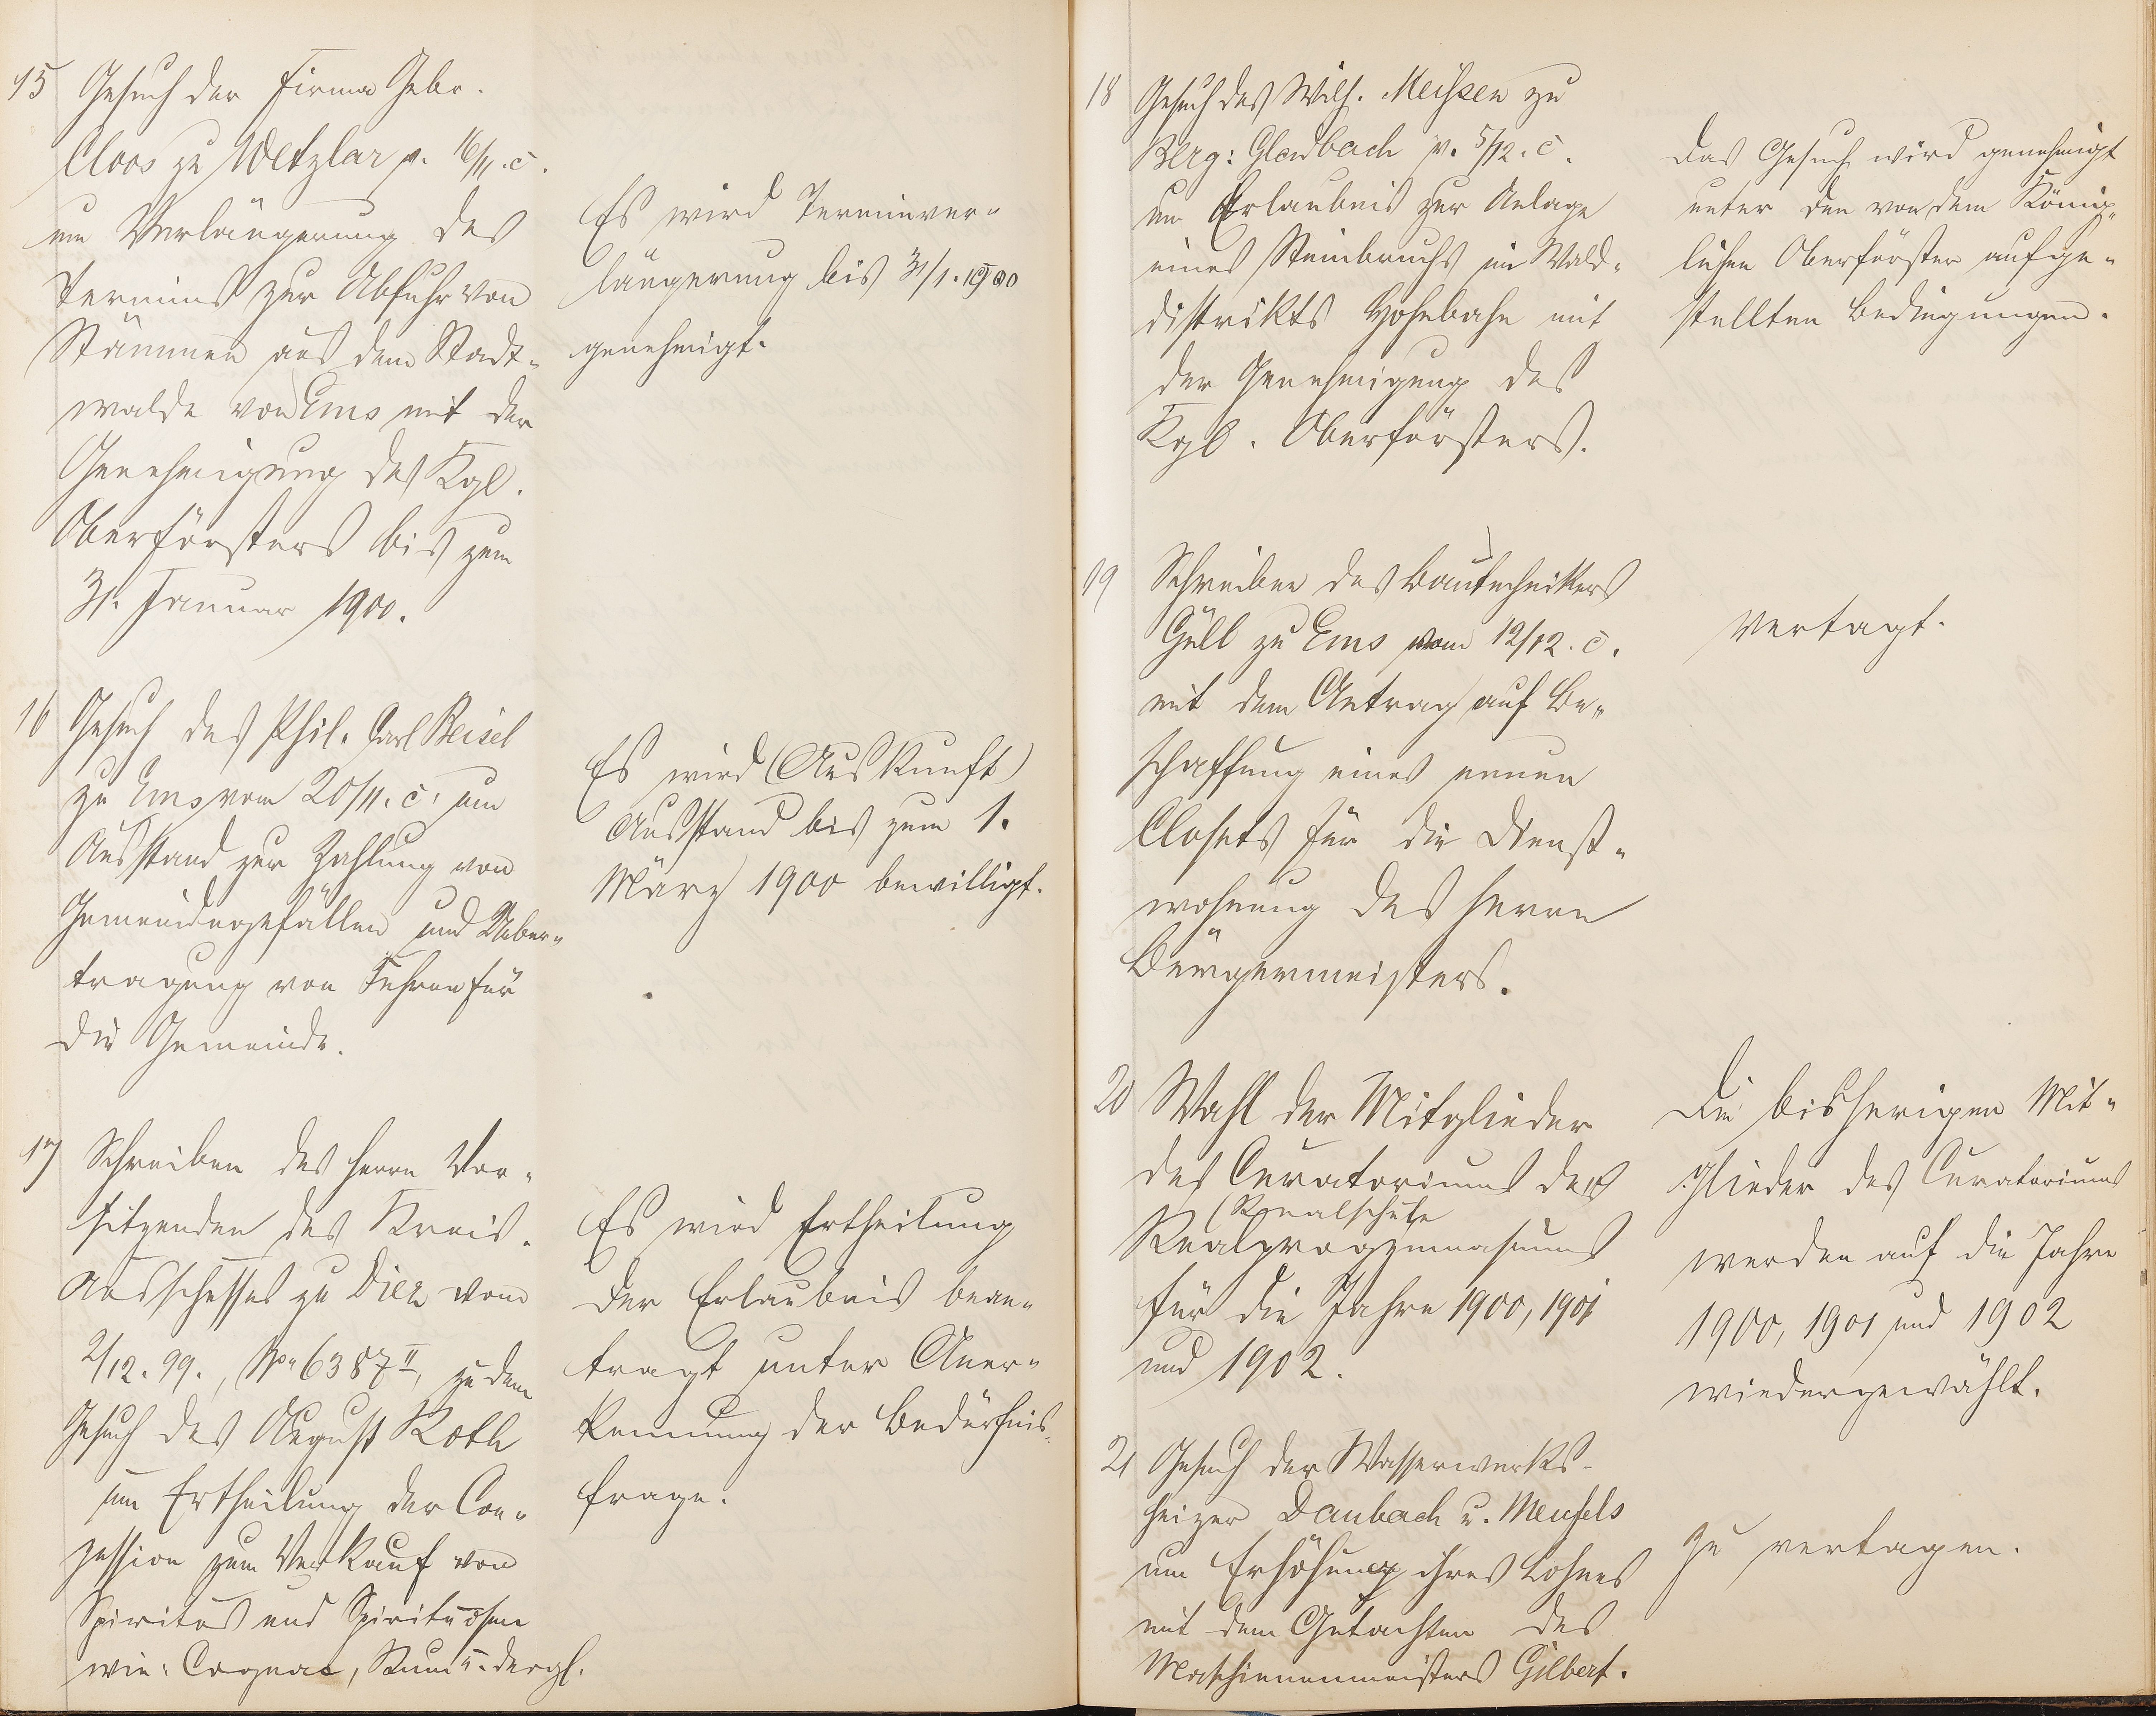 15 Gesuch der Firma Gebr.
Cloos zu Wetzlar v. 16/11. c.
um Verlängerung des
Termins zur Abfuhr von
Stämmen aus dem Stadt-
walde von Ems mit der
Genehmigung des Kgl.
Oberförsters bis zum
31. Januar 1900.
Es wird Terminver-
längerung bis 31/1. 1900
genehmigt.
16 Gesuch des Phil. Carl Beisel
zu Ems vom 20/11. c. um
Ausstand zur Zahlung von
Gemeindegefällen und Ueber-
tragung von Fuhren für
die Gemeinde.
Es wird (Auskunft)
Ausstand bis zum 1.
März 1900 bewilligt.
17 Schreiben des Herrn Vor-
sitzenden des Kreis-
ausschusses zu Diez vom
2/12. 99., No 6387 II, zu dem
Gesuch des August Roth
um Ertheilung der Con-
zession zum Verkauf von
Spiritus und Spirituosen
wie: Cognac, Rum u. dergl.
Es wird Ertheilung
der Erlaubnis bean-
tragt unter Aner-
kennung der Bedürfnis-
frage.
18 Gesuch des Wilh. Meißen zu
Berg: Gladbach v. 5/12. c.
um Erlaubnis zur Anlage
eines Steinbruchs im Wald-
distrikts Hohebahn mit
der Genehmigung des
Kgl. Oberförsters.
Das Gesuch wird genehmigt
unter den von dem König-
lichen Oberförster aufge-
stellten Bedingungen.
19 Schreiben des Bautechnikers
Güll zu Ems vom 12/12. c.
mit dem Antrag auf Be-
schaffung eines neuen
Closets für die Dienst-
wohnung des Herrn
Bürgermeisters.
Vertagt.
20 Wahl der Mitglieder
des Curatoriums des
(Realschule
Realprogymnasiums
für die Jahre 1900, 1901
und 1902.
Die bisherigen Mit-
glieder des Curatoriums
werden auf die Jahre
1900, 1901 und 1902
wiedergewählt.
21 Gesuch der Wasserwerks-
heizer Daubach u. Meusels
um Erhöhung ihres Lohnes
mit dem Gutachten des
Maschinenmeisters Gilbert.
Zu vertagen.